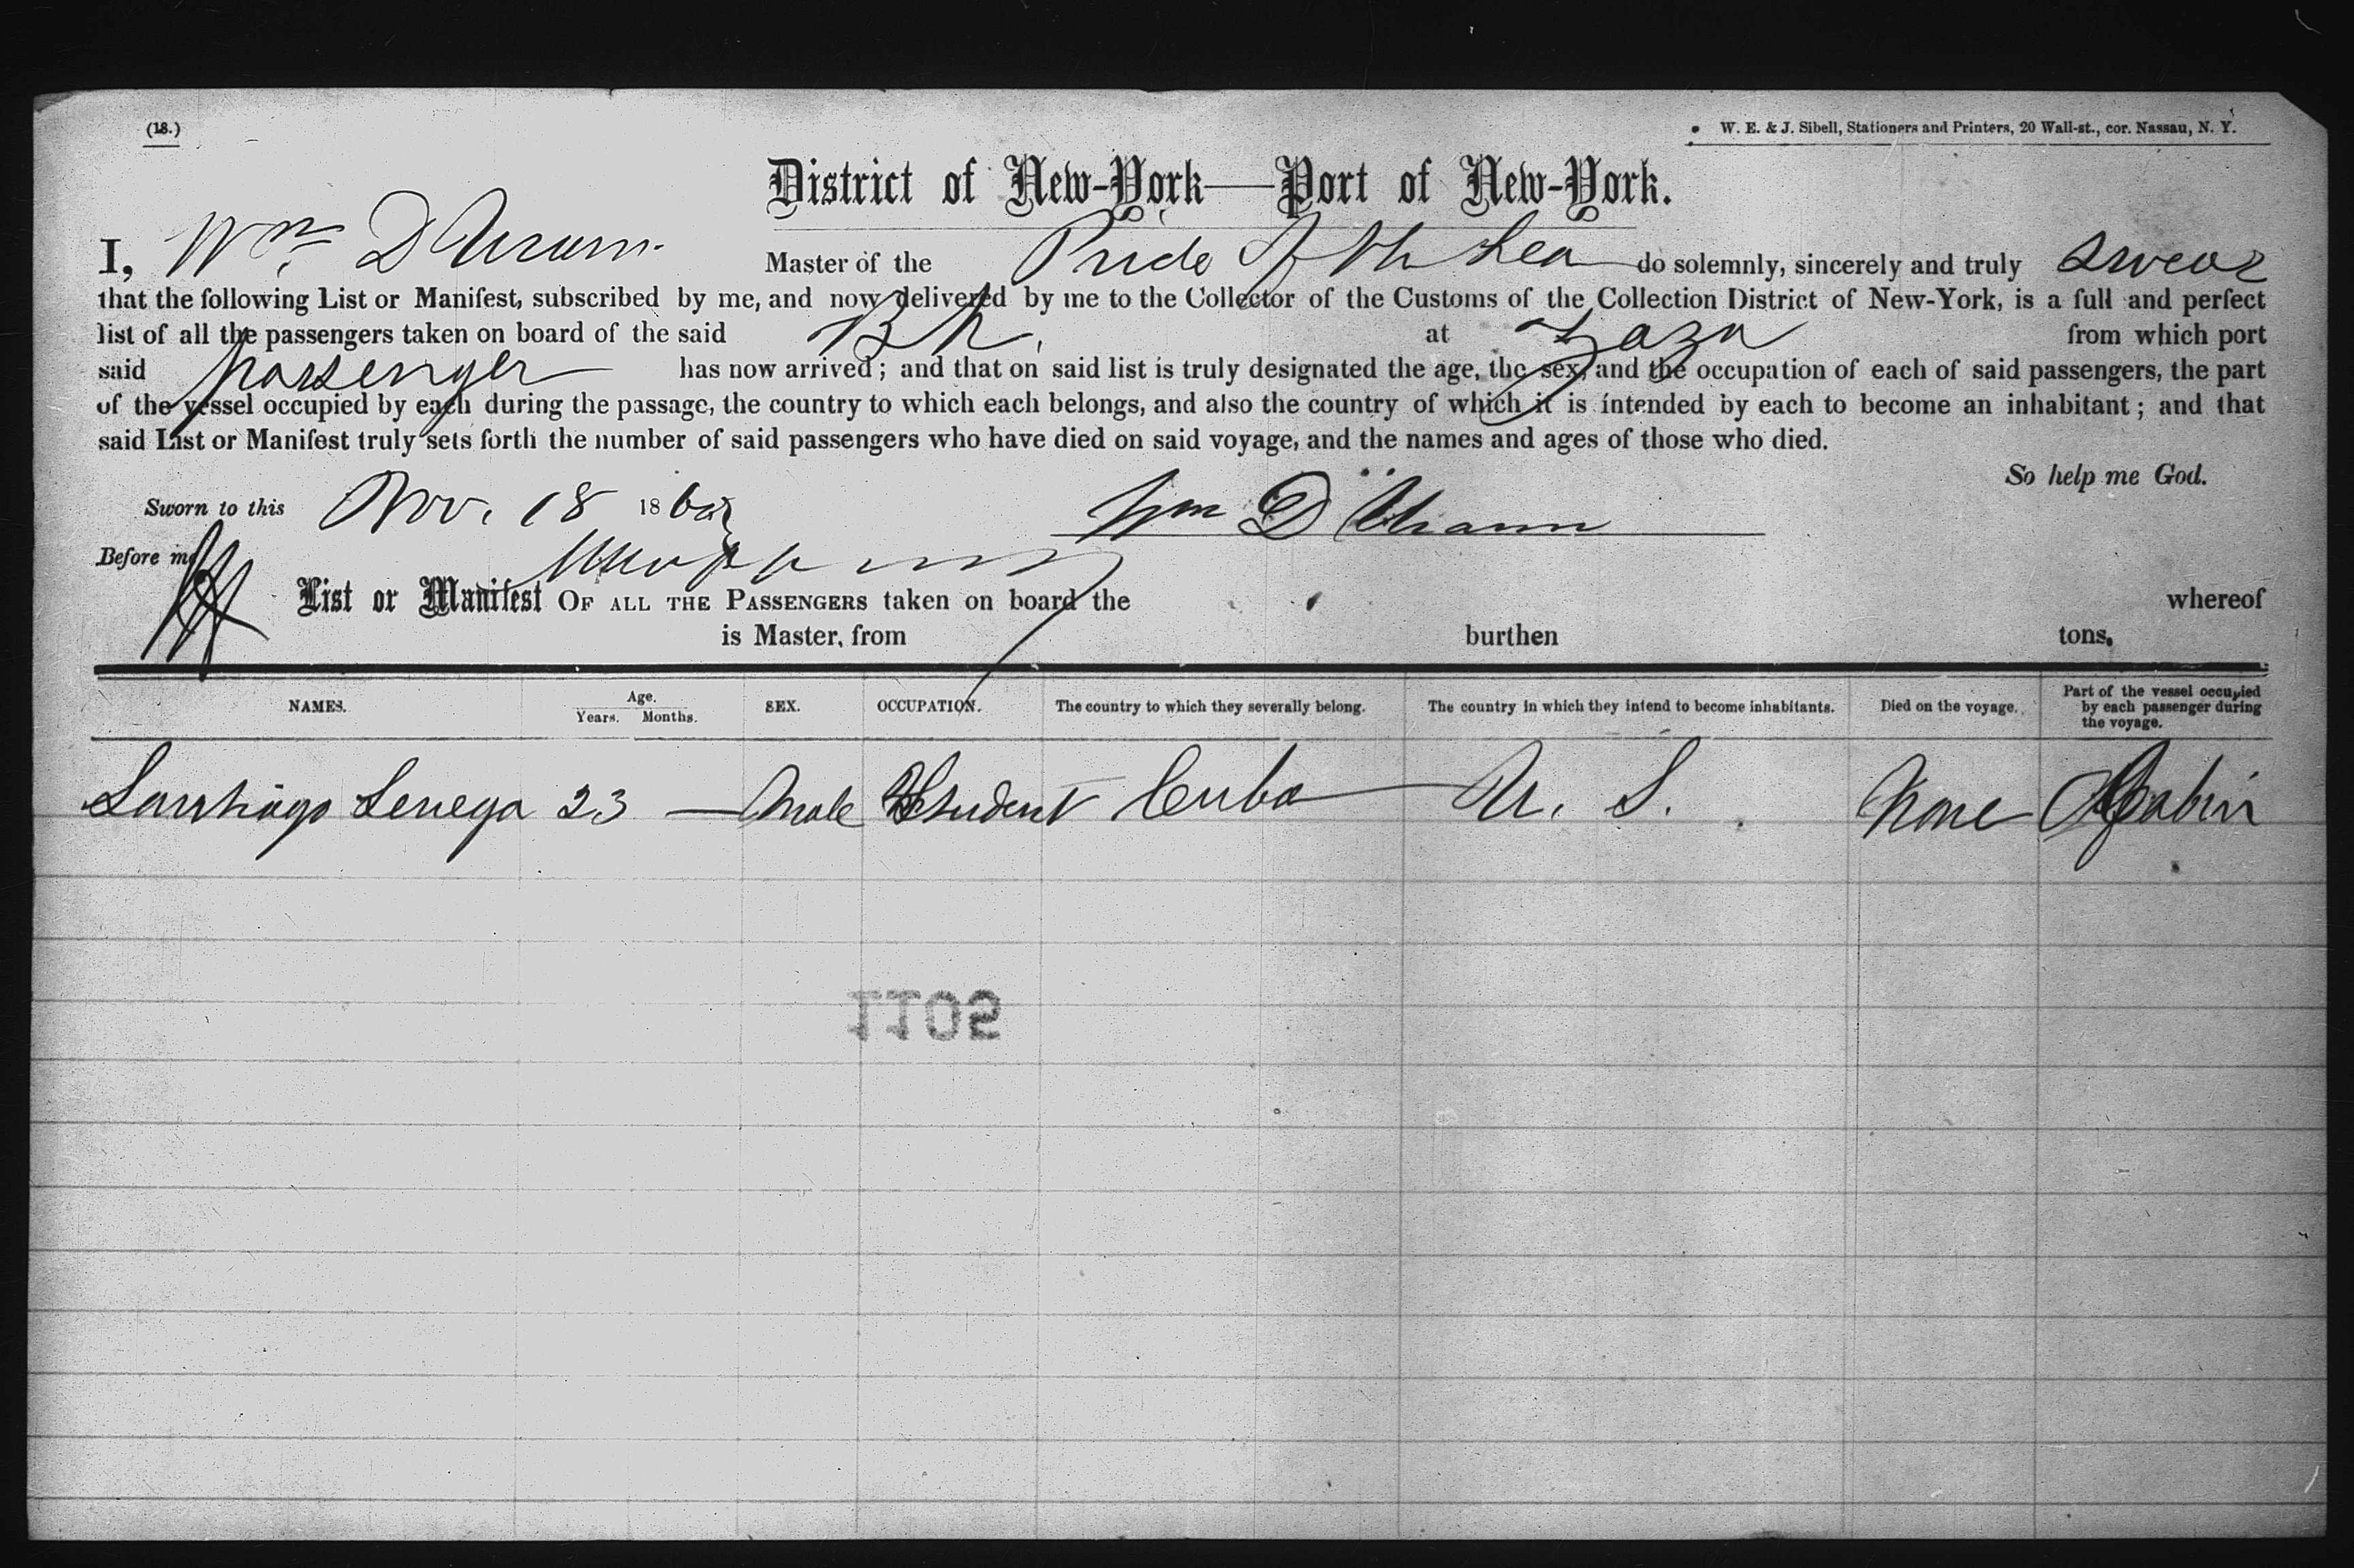 (18.)
W. E. & J. Sibell, Stationers and Printers, 20 Wall-st., cor. Nassau, N. Y.
District of New-York—Port of New-York.
I, Wm D Master of the Pride of the Sea do solemnly, sincerely and truly swear
that the following List or Manifest, subscribed by me, and now delivered by me to the Collector of the Customs of the Collection District of New-York, is a full and perfect
list of all the passengers taken on board of the said Bk. at Zaza from which port
said passenger has now arrived; and that on said list is truly designated the age, the sex, and the occupation of each of said passengers, the part
of the vessel occupied by each during the passage, the country to which each belongs, and also the country of which it is intended by each to become an inhabitant; and that
said List or Manifest truly sets forth the number of said passengers who have died on said voyage, and the names and ages of those who died.
So help me God.
Sworn to this Nov. 18 18 Wm D
Before me
List or Manifest OF ALL THE PASSENGERS taken on board the whereof
is Master, from burthen tons.
NAMES. Age. Years. Months. SEX. OCCUPATION. The country to which they severally belong. The country in which they intend to become inhabitants. Died on the voyage. Part of the vessel occupied by each passenger during the voyage.
Santiago Senega 23 — Male Student Cuba U. S. None Cabin
1102